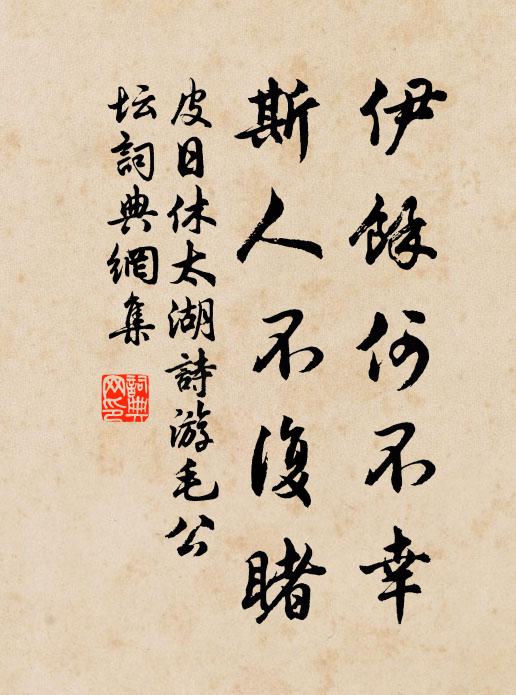 伊餘何不幸
斯人不復睹
皮日休太湖詩游毛公
坛詞典網集
詞典
网印